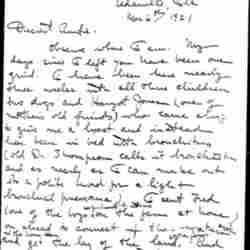 Nov 6th 1921
Dearest Aunts.
Observe where I am. My
days since I left you have been one
grind. I have been here nearly
three weeks with all three children
two days and Margot Jonson (one of
mothers old friends) who came along
to give me a boost and instead
has been in bed with bronchitis
(old Dr. Thompson calls it bronchitis
and as nearly as I can make out
is a polite word for a light
bronchial pneumonia). I sent Fred
(one of the boys on the farm at home)
ahead to connect up the
and get the lay of the land and